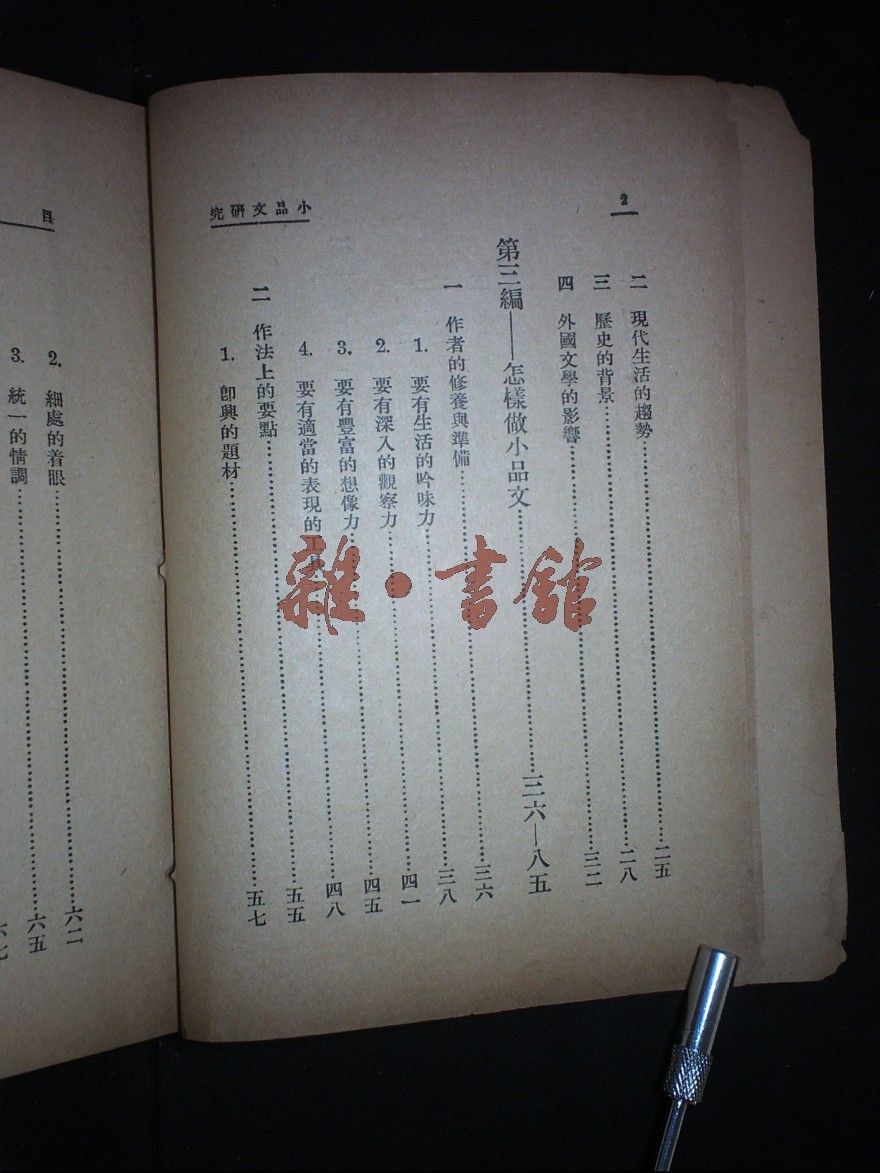 2
小品文研究
二 現代生活的趨勢……二五
三 歷史的背景……二八
四 外國文學的影響……三二
第三編——怎樣做小品文……三六—八五
一 作者的修養與準備……三六
1. 要有生活的吟味力……三八
2. 要有深入的觀察力……四一
3. 要有豐富的想像力……四五
4. 要有適當的表現的工具……四八
二 作法上的要點……五五
1. 卽興的題材……五七
目
2. 細處的着眼……六二
3. 統一的情調……六五
雜·書館